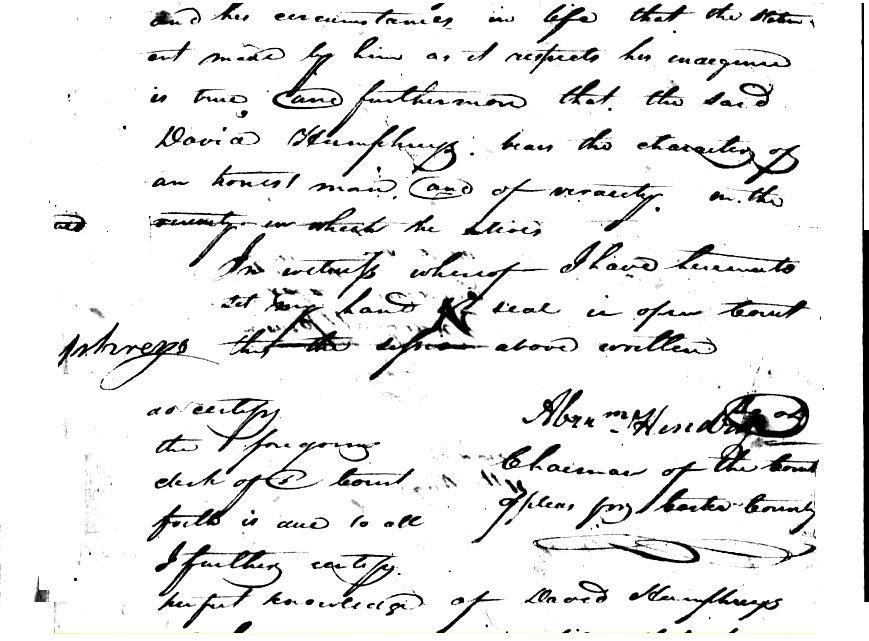 and his circumstances in life that the Statem
ent made by him as it respects his indegence
is true, and furthermore that the said
David Humphreys. bears the character of
an honest man, and of veracity. in the
and vicinity in which he lives
In witness whereof I have hereunto
set my hand & seal in open Court
phreys this the session above written
do certify
the foregoing
clerk of Court
faith is due to all
I further certify.
Abrm Hendry
Chairman of the Court
of pleas for Carter County
perfect knowledge of David Humphreys